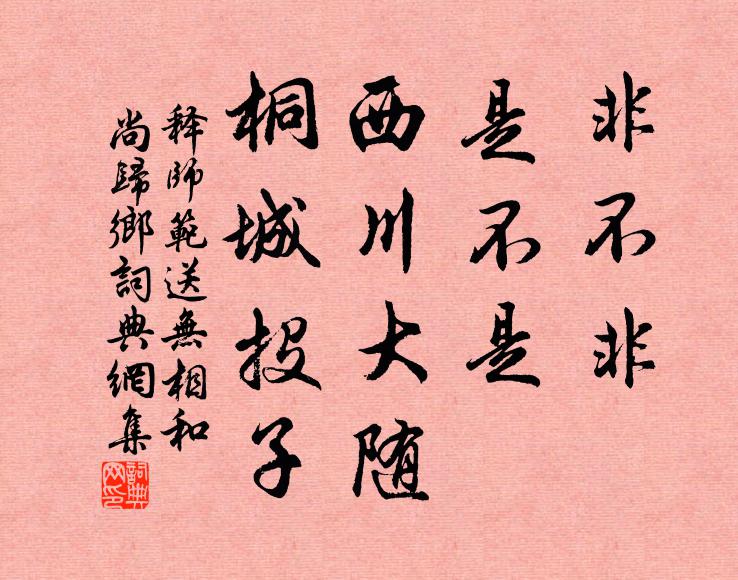 非不非
是不是
西川大随
桐城投子
释師範送無相和
尚歸鄉詞典網集
詞典
网印